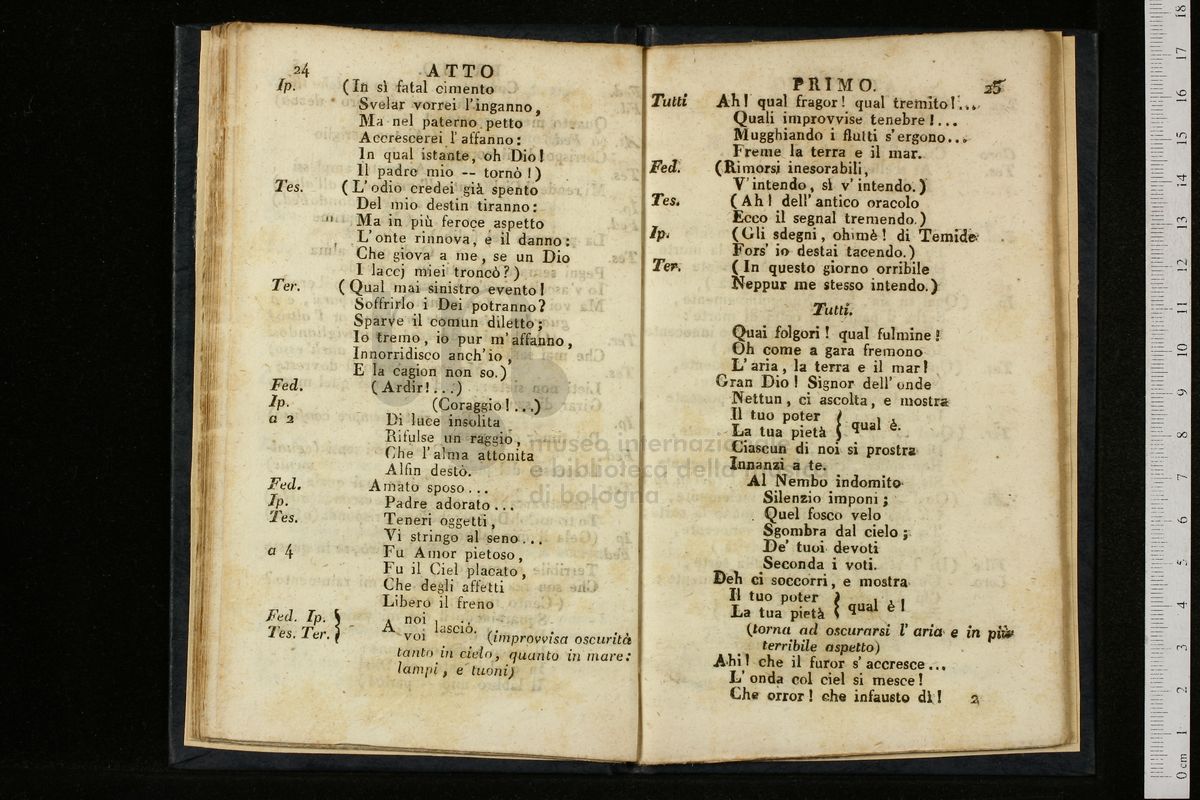 24 ATTO
Ip. (In sì fatal cimento
Svelar vorrei l'inganno,
Ma nel paterno petto
Accrescerei l'affanno:
In qual istante, oh Dio!
Il padre mio -- tornò!)
Tes. (L'odio credei già spento
Del mio destin tiranno:
Ma in più feroce aspetto
L'onte rinnova, e il danno:
Che giova a me, se un Dio
I laccj miei troncò?)
Ter. (Qual mai sinistro evento!
Soffrirlo i Dei potranno?
Sparve il comun diletto;
Io tremo, io pur m'affanno,
Innorridisco anch'io,
E la cagion non so.)
Fed. (Ardir!...)
Ip. (Coraggio!...)
a 2 Di luce insolita
Rifulse un raggio,
Che l'alma attonita
Alfin destò.
Fed. Amato sposo...
Ip. Padre adorato...
Tes. Teneri oggetti,
Vi stringo al seno...
a 4 Fu Amor pietoso,
Fu il Ciel placato,
Che degli affetti
Libero il freno
Fed. Ip. } A noi lasciò. (improvvisa oscurità
Tes. Ter. } voi
tanto in cielo, quanto in mare:
lampi, e tuoni)
PRIMO. 25
Tutti Ah! qual fragor! qual tremito!...
Quali improvvise tenebre!...
Mugghiando i flutti s'ergono...
Freme la terra e il mar.
Fed. (Rimorsi inesorabili,
V'intendo, sì v'intendo.)
Tes. (Ah! dell'antico oracolo
Ecco il segnal tremendo.)
Ip. (Gli sdegni, ohimè! di Temide
Fors' io destai tacendo.)
Ter. (In questo giorno orribile
Neppur me stesso intendo.)
Tutti.
Quai folgori! qual fulmine!
Oh come a gara fremono
L'aria, la terra e il mar!
Gran Dio! Signor dell'onde
Nettun, ci ascolta, e mostra
Il tuo poter } qual è.
La tua pietà }
Ciascun di noi si prostra
Innanzi a te.
Al Nembo indomito
Silenzio imponi;
Quel fosco velo
Sgombra dal cielo;
De' tuoi devoti
Seconda i voti.
Deh ci soccorri, e mostra
Il tuo poter } qual è!
La tua pietà }
(torna ad oscurarsi l'aria e in più
terribile aspetto)
Ahi! che il furor s'accresce...
L'onda col ciel si mesce!
Che orror! che infausto dì! 2
museo internazionale
e biblioteca della
di bologna
0 cm 1 2 3 4 5 6 7 8 9 10 11 12 13 14 15 16 17 18